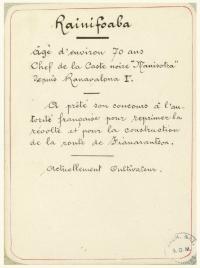 Rainifsaba
âgé d'environ 70 ans
Chef de la Caste noire "Manisotra"
depuis Ranavalona Iº.
A prêté son concours à l'au-
torité française pour réprimer la
révolte et pour la construction
de la route de Fianarantsoa.
Actuellement Cultivateur.